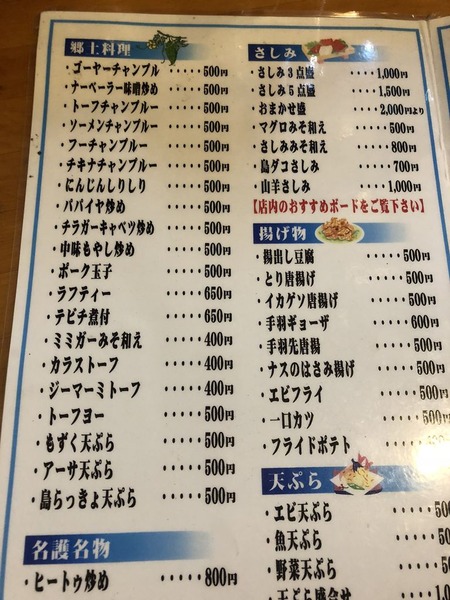 郷土料理
・ゴーヤーチャンプル ・・・・・500円
・ナーベーラー味噌炒め ・・・・500円
・トーフチャンプルー ・・・・・500円
・ソーメンチャンプルー ・・・・500円
・フーチャンプルー ・・・・・500円
・チキナチャンプルー ・・・・・500円
・にんじんしりしり ・・・・・500円
・パパイヤ炒め ・・・・・500円
・チラガーキャベツ炒め ・・・・500円
・中味もやし炒め ・・・・・500円
・ポーク玉子 ・・・・・500円
・ラフティー ・・・・・650円
・テビチ煮付 ・・・・・650円
・ミミガーみそ和え ・・・・400円
・カラストーフ ・・・・・400円
・ジーマーミトーフ ・・・・400円
・トーフヨー ・・・・・500円
・もずく天ぷら ・・・・・500円
・アーサ天ぷら ・・・・・500円
・島らっきょ天ぷら ・・・・500円
名護名物
・ヒートゥ炒め ・・・・・800円
さしみ
・さしみ3点盛 ・・・・1,000円
・さしみ5点盛 ・・・・1,500円
・おまかせ盛 ・・・・2,000円より
・マグロみそ和え ・・・・500円
・さしみみそ和え ・・・・800円
・島ダコさしみ ・・・・・700円
・山羊さしみ ・・・・・1,000円
【店内のおすすめボードをご覧下さい】
揚げ物
・揚出し豆腐 ・・・・・500円
・とり唐揚げ ・・・・・500円
・イカゲソ唐揚げ ・・・・500円
・手羽ギョーザ ・・・・・600円
・手羽先唐揚 ・・・・・500円
・ナスのはさみ揚げ ・・・・500円
・エビフライ ・・・・・500円
・一口カツ ・・・・・500
・フライドポテト ・・・・・
天ぷら
・エビ天ぷら ・・・・・50
・魚天ぷら ・・・・・50
・野菜天ぷら ・・・・・50
・天ぷら盛合せ ・・・・1,0